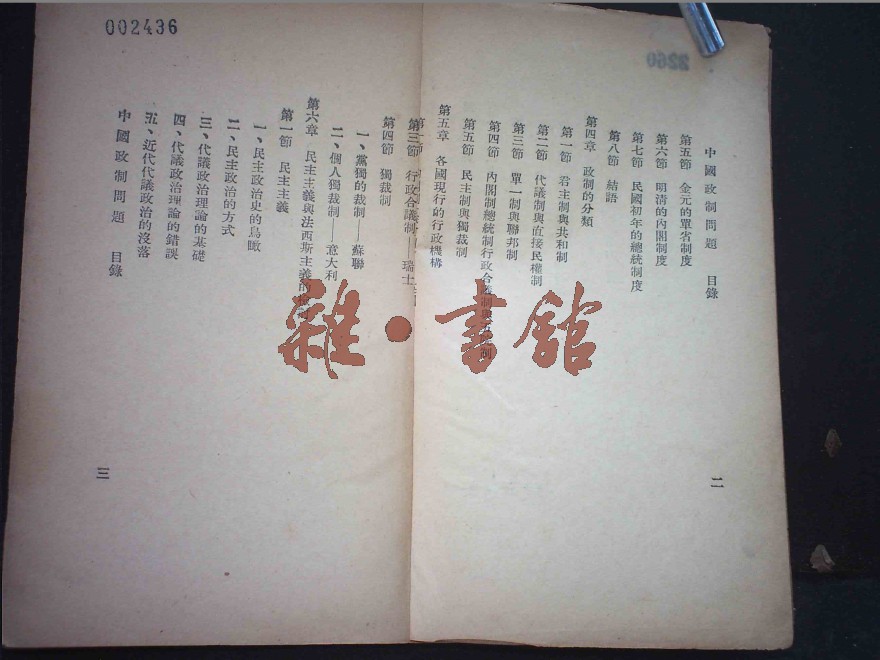 002436
2260
中國政制問題 目錄
第五節 金元的單省制度
第六節 明清的內閣制度
第七節 民國初年的總統制度
第八節 結語
第四章 政制的分類
第一節 君主制與共和制
第二節 代議制與直接民權制
第三節 單一制與聯邦制
第四節 內閣制總統制行政合議制與
第五節 民主制與獨裁制
第五章 各國現行的行政機構
二
第三節 行政合議制——瑞士
第四節 獨裁制
一、黨獨的裁制——蘇聯
二、個人獨裁制——意大利
第六章 民主主義與法西斯主義的
第一節 民主主義
一、民主政治史的鳥瞰
二、民主政治的方式
三、代議政治理論的基礎
四、代議政治理論的錯誤
五、近代代議政治的沒落
中國政制問題 目錄
三
雜·書館